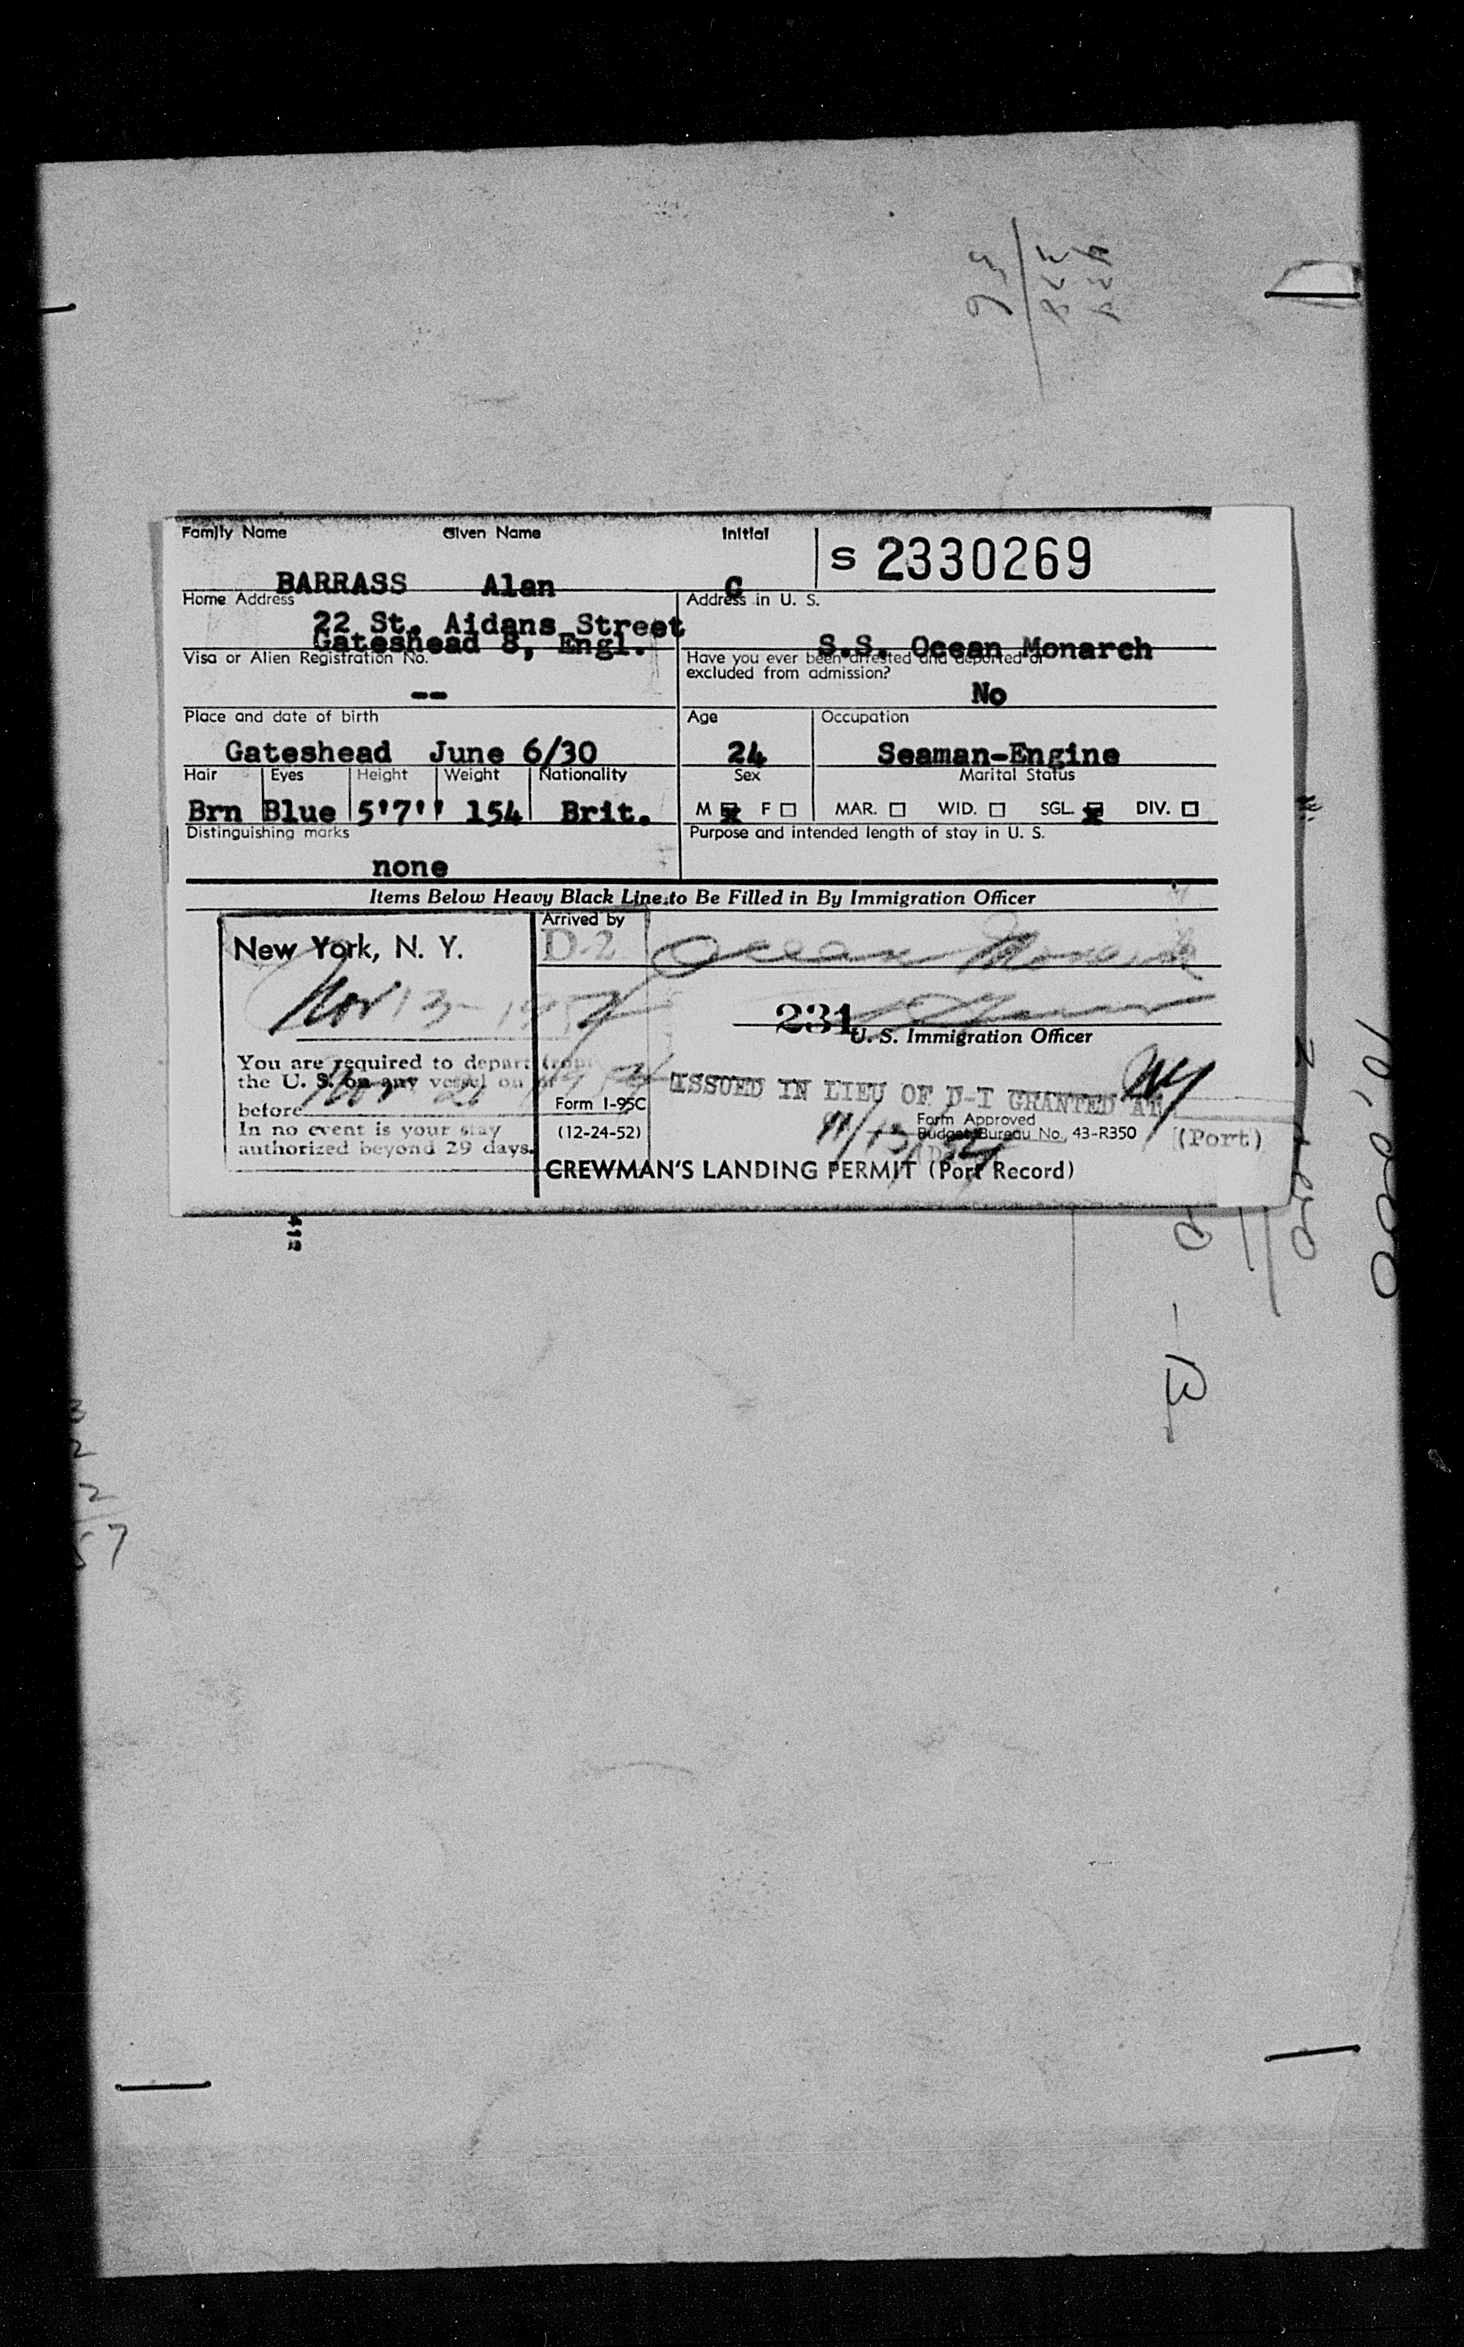 Family Name Given Name Initial
S 2330269
BARRASS Alan C
Home Address Address in U. S.
22 St. Aidans Street
Gateshead 8, Engl. S.S. Ocean Monarch
Visa or Alien Registration No. Have you ever been arrested and deported or
excluded from admission?
-- No
Place and date of birth Age Occupation
Gateshead June 6/30 24 Seaman-Engine
Hair Eyes Height Weight Nationality Sex Marital Status
Brn Blue 5'7'' 154 Brit. M x F MAR. WID. SGL. x DIV.
Distinguishing marks Purpose and intended length of stay in U. S.
none
Items Below Heavy Black Line to Be Filled in By Immigration Officer
Arrived by
New York, N. Y. D-2 Ocean Monarch
Nov 13 1954 231
U. S. Immigration Officer
You are required to depart from
the U. S. on any vessel on or
before
In no event is your stay
authorized beyond 29 days.
ISSUED IN LIEU OF D-T GRANTED AT NY
Form I-95C 11/13/54 Form Approved
(12-24-52) Budget Bureau No. 43-R350 (Port)
CREWMAN'S LANDING PERMIT (Port Record)